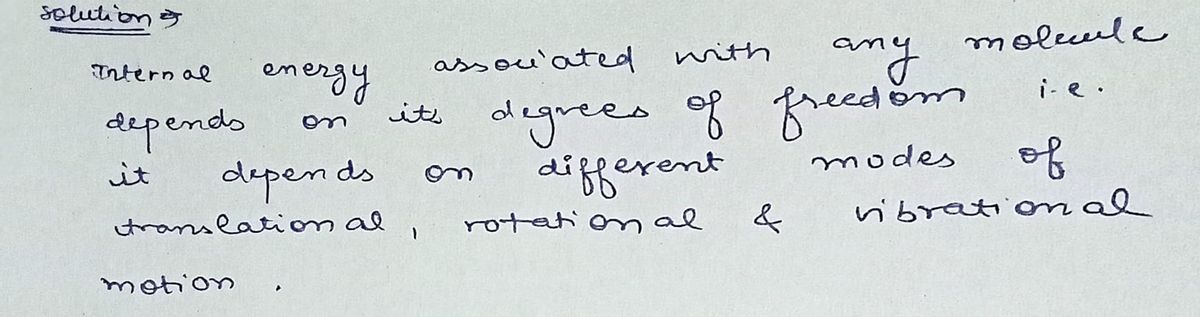 solution ⇒
Internal energy associated with any molecule
depends on its degrees of freedom i.e.
it depends on different modes of
translational, rotational & vibrational
motion .